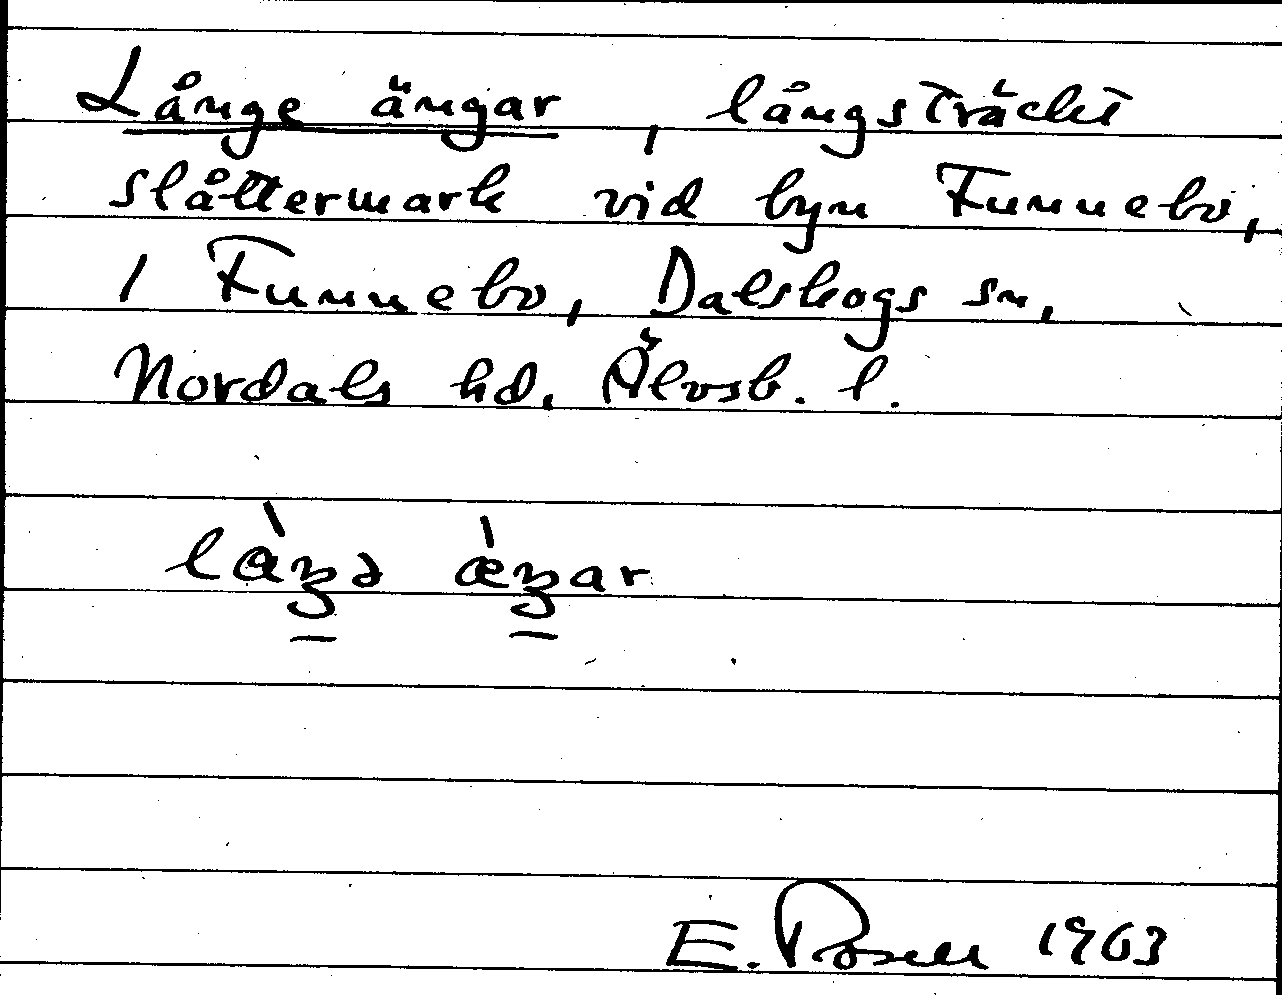 Långe ängar, långsträckt
slåttermark vid byn Funnebo,
1 Funnebo, Dalskogs sn,
Nordals hd. Älvsb. l.
E. Rosell 1963